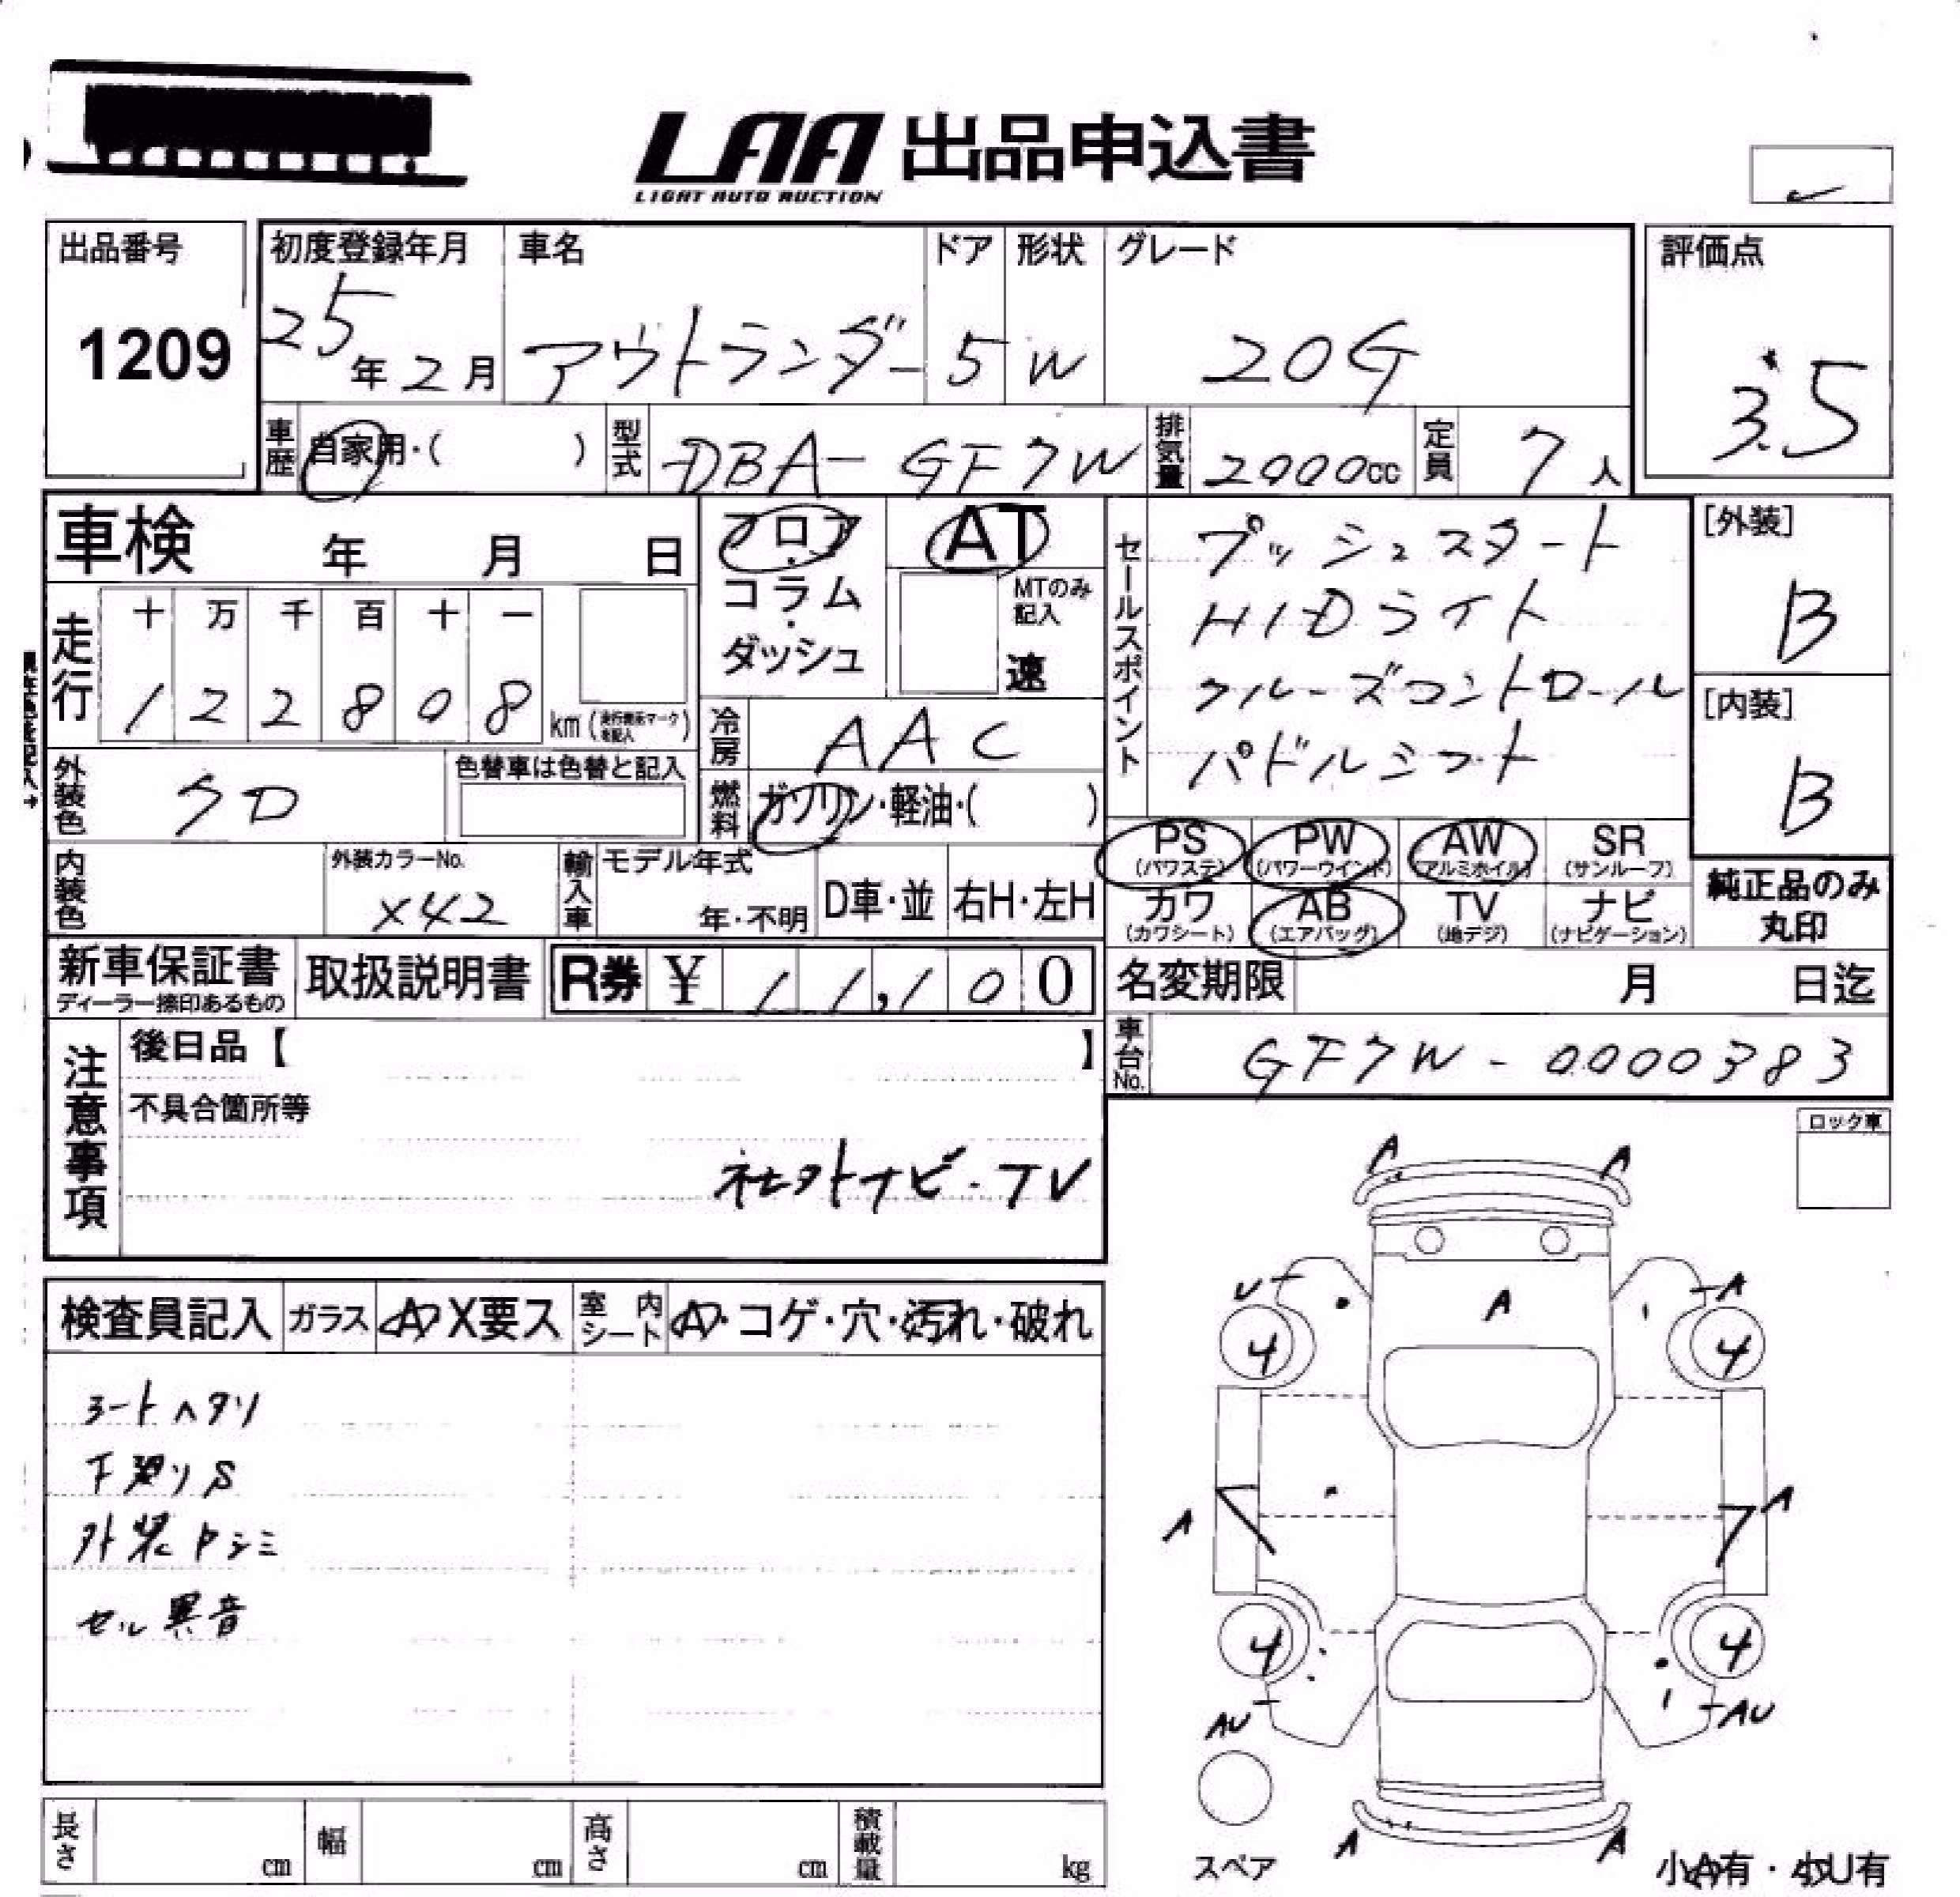 LAA 出品申込書
LIGHT AUTO AUCTION
出品番号
1209
初度登録年月
25年2月
車名
アウトランダー
ドア
5
形状
W
グレード
20G
評価点
3.5
車歴 自家用・( )
型式 DBA-GF7W
排気量 2000cc
定員 7人
車検 年 月 日
フロア・コラム・ダッシュ
AT
MTのみ記入
速
セールスポイント
プッシュスタート
HIDライト
クルーズコントロール
パドルシフト
[外装]
B
[内装]
B
走行
十 万 千 百 十 一
1 2 2 8 0 8 km
冷房 AAC
外装色 クロ
色替車は色替と記入
燃料 ガソリン・軽油・( )
PS (パワステ)
PW (パワーウインド)
AW (アルミホイル)
SR (サンルーフ)
カワ (カワシート)
AB (エアバッグ)
TV (地デジ)
ナビ (ナビゲーション)
純正品のみ
丸印
内装色
外装カラーNo.
X42
輸入車
モデル年式
年・不明
D車・並
右H・左H
新車保証書
ディーラー捺印あるもの
取扱説明書
R券 ¥ 11,100
名変期限 月 日迄
車台No. GF7W-0000383
注意事項
後日品【 】
不具合箇所等
社外ナビ・TV
ロック車
検査員記入
ガラス A X要ス
室内シート A・コゲ・穴・汚れ・破れ
シートヘタリ
下廻りS
外装キシミ
セル異音
A A
U A A
4 4
A A
4 4
AU AU
A A
スペア
小A有・小U有
長さ cm
幅 cm
高さ cm
積載量 kg